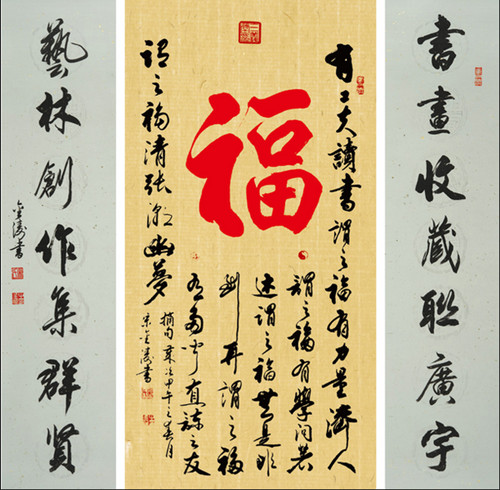 書畫收藏聯廣宇
福
有工夫讀書謂之福有力量濟人
謂之福有學問著
述謂之福無是非
到耳謂之福
有多聞直諒之友
謂之福清張潮幽夢
摘句歲次甲午之春月
宋金濤書
藝林創作集群賢
金濤書